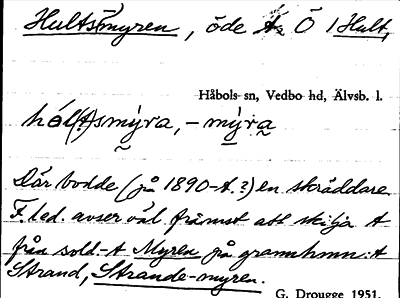 Hultsmyren, öde t. Ö / Hult,
Håbols sn, Vedbo hd, Älvsb. l.
hól(t)smýra, - mýra
Där bodde (på 1890-t.?) en skräddare
F. led. avser väl främst att skilja t
från sold.-t Myren på grannhmn:t
Strand, Strande-myren.
G. Drougge 1951.